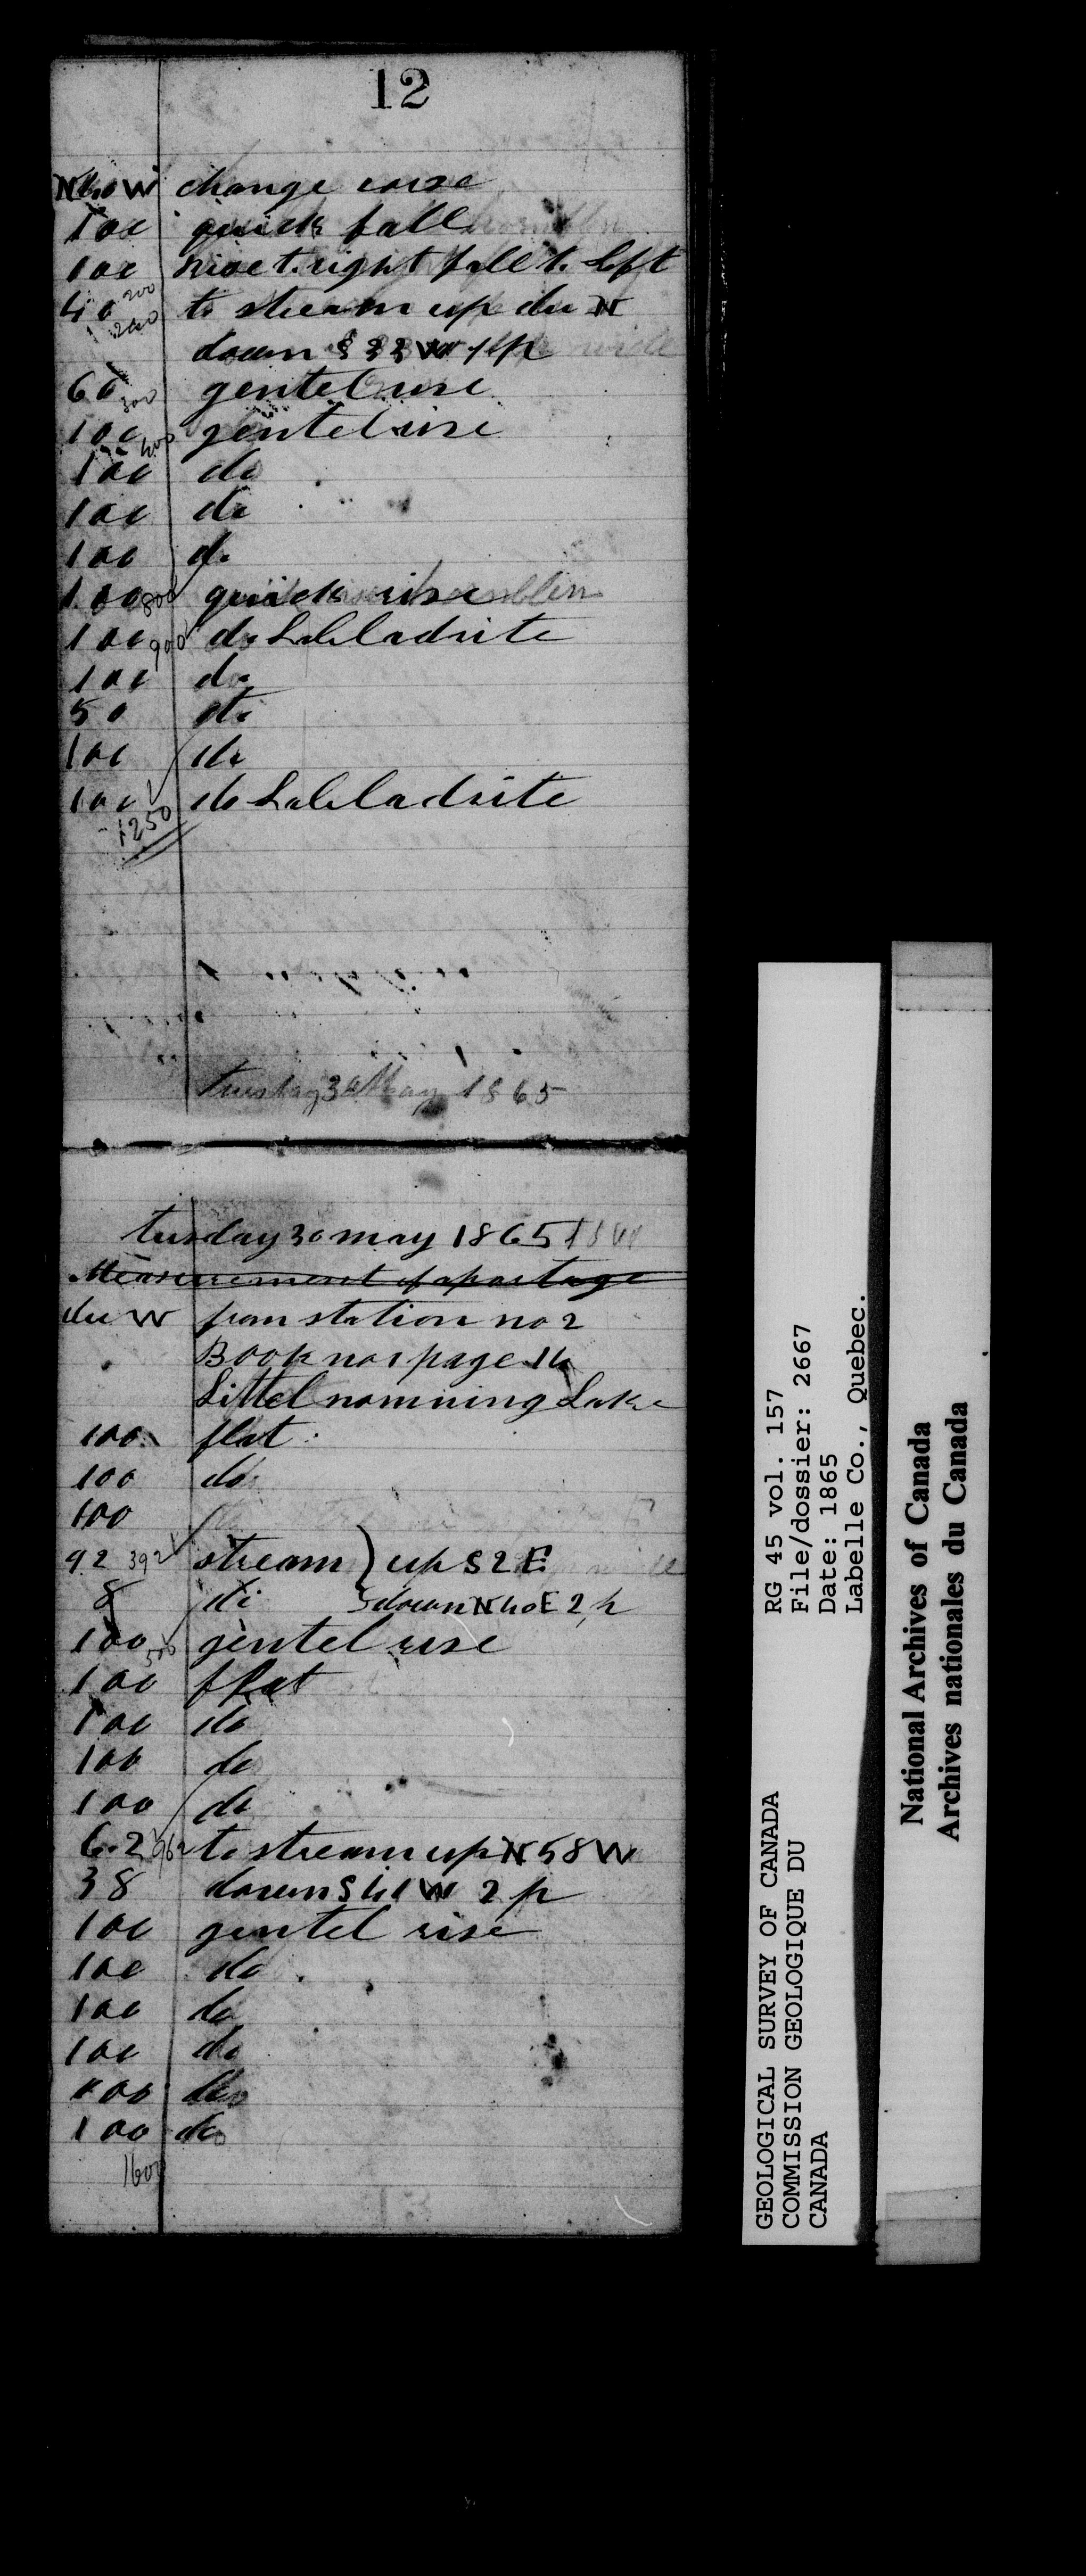 12
N 40 W change corse
100 quick fall
100 rise t. right fall t. left
40 200 to stream up du N
240 down S 33 W 1 p
60 300 gentel rise
100 400 gentel rise
100 do
100 do
100 do
100 800 quick rise
100 900 do Labladrite
100 do
50 do
100 do
100 do Labladrite
1250
tuesday 30 May 1865
tusday 30 may 1865
Measurement of a portage
du W from station no 2
Book no 1 page 16
Littel nomining Lake
100 flat
100 do
100
92 392 stream } up S 2 E
8 do down N 40 E 2 p
100 500 gentel rise
100 flat
100 do
100 do
100 do
62 962 to stream up N 58 W
38 down S 41 W 2 p
100 gentel rise
100 do
100 do
100 do
100 do
100 do
1600
GEOLOGICAL SURVEY OF CANADA
COMMISSION GEOLOGIQUE DU
CANADA
RG 45 vol. 157
File/dossier: 2667
Date: 1865
Labelle Co., Quebec.
National Archives of Canada
Archives nationales du Canada